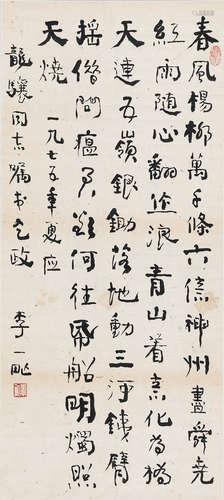 春風楊柳萬千條六億神州盡舜堯
紅雨隨心翻作浪青山着意化為橋
天連五嶺銀鋤落地動三河鐵臂
搖借問瘟君欲何往紙船明燭照
天燒 一九七五年夏應
龍驤同志囑書之政
李一氓